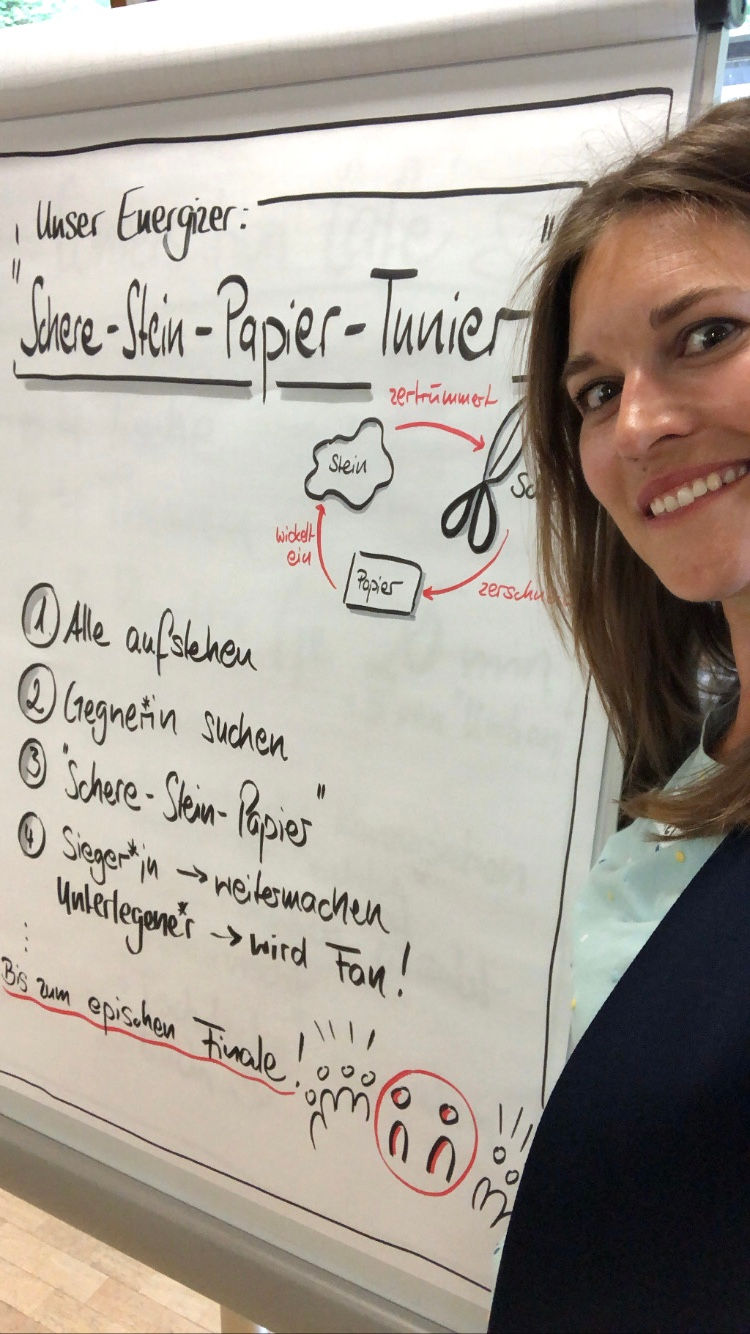 Unser Energizer:
"Schere-Stein-Papier-Tunier"
zertrümmert
Stein
wickelt
ein
Papier
① Alle aufstehen
② Gegner*in suchen
③ "Schere-Stein-Papier"
④ Sieger*in → weitermachen
Unterlegene*r → wird Fan!
Bis zum epischen Finale!